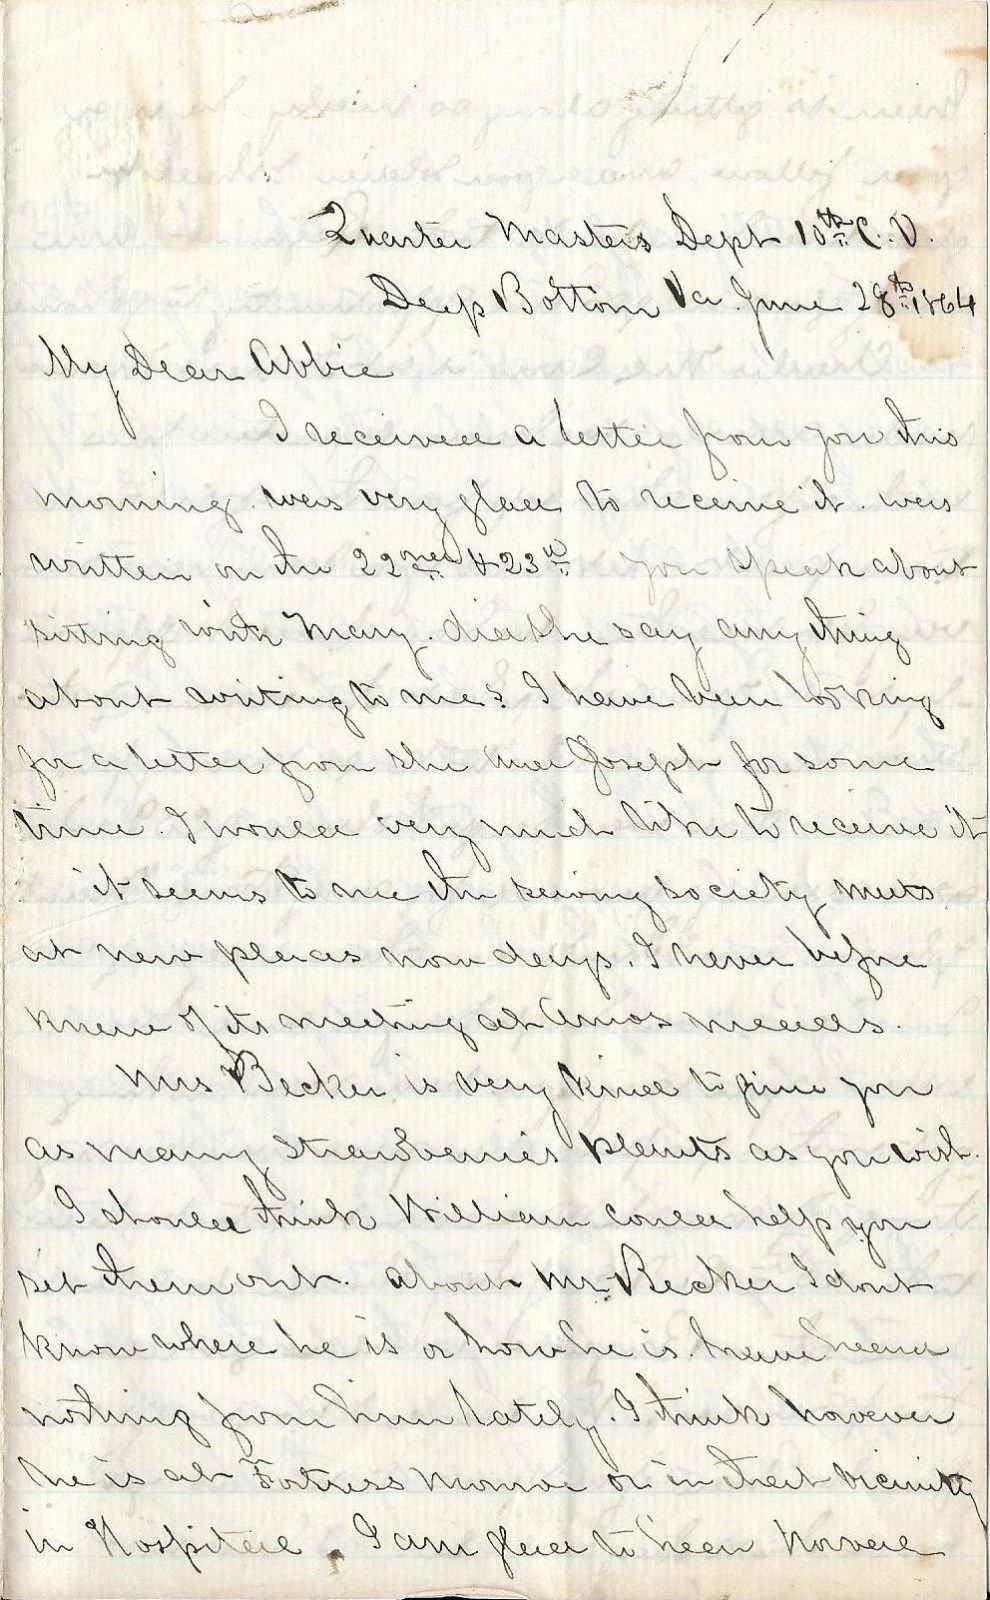 Quarter Masters Dept 10th C.V.
Deep Bottom Va June 28th 1864
My Dear Abbie
I received a letter from you this
morning. was very glad to receive it. was
written on the 22nd & 23rd you speak about
sitting with Mary. did she say any thing
about writing to me? I have been looking
for a letter from she and Joseph for some
time. I would very much like to receive it
it seems to me the sewing society meets
at new places now days. I never before
knew of its meeting at Amos Meads.
Mrs Becker is very kind to give you
as many Strawberries plants as you wish.
I should think William could help you
set them out. about Mr. Becker I dont
know where he is or how he is. have heard
nothing from him lately. I think however
he is at Fortress Monroe or in that vicinity
in Hospital. I am glad to hear